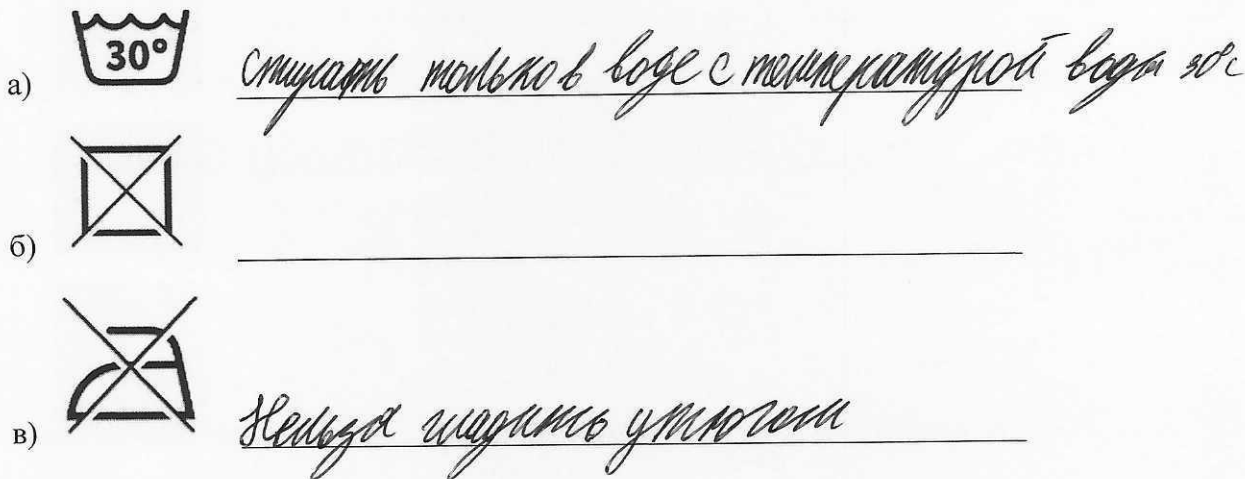 30°
а) стирать только в воде с температурой воды 30°с
б)
в) Нельзя гладить утюгом